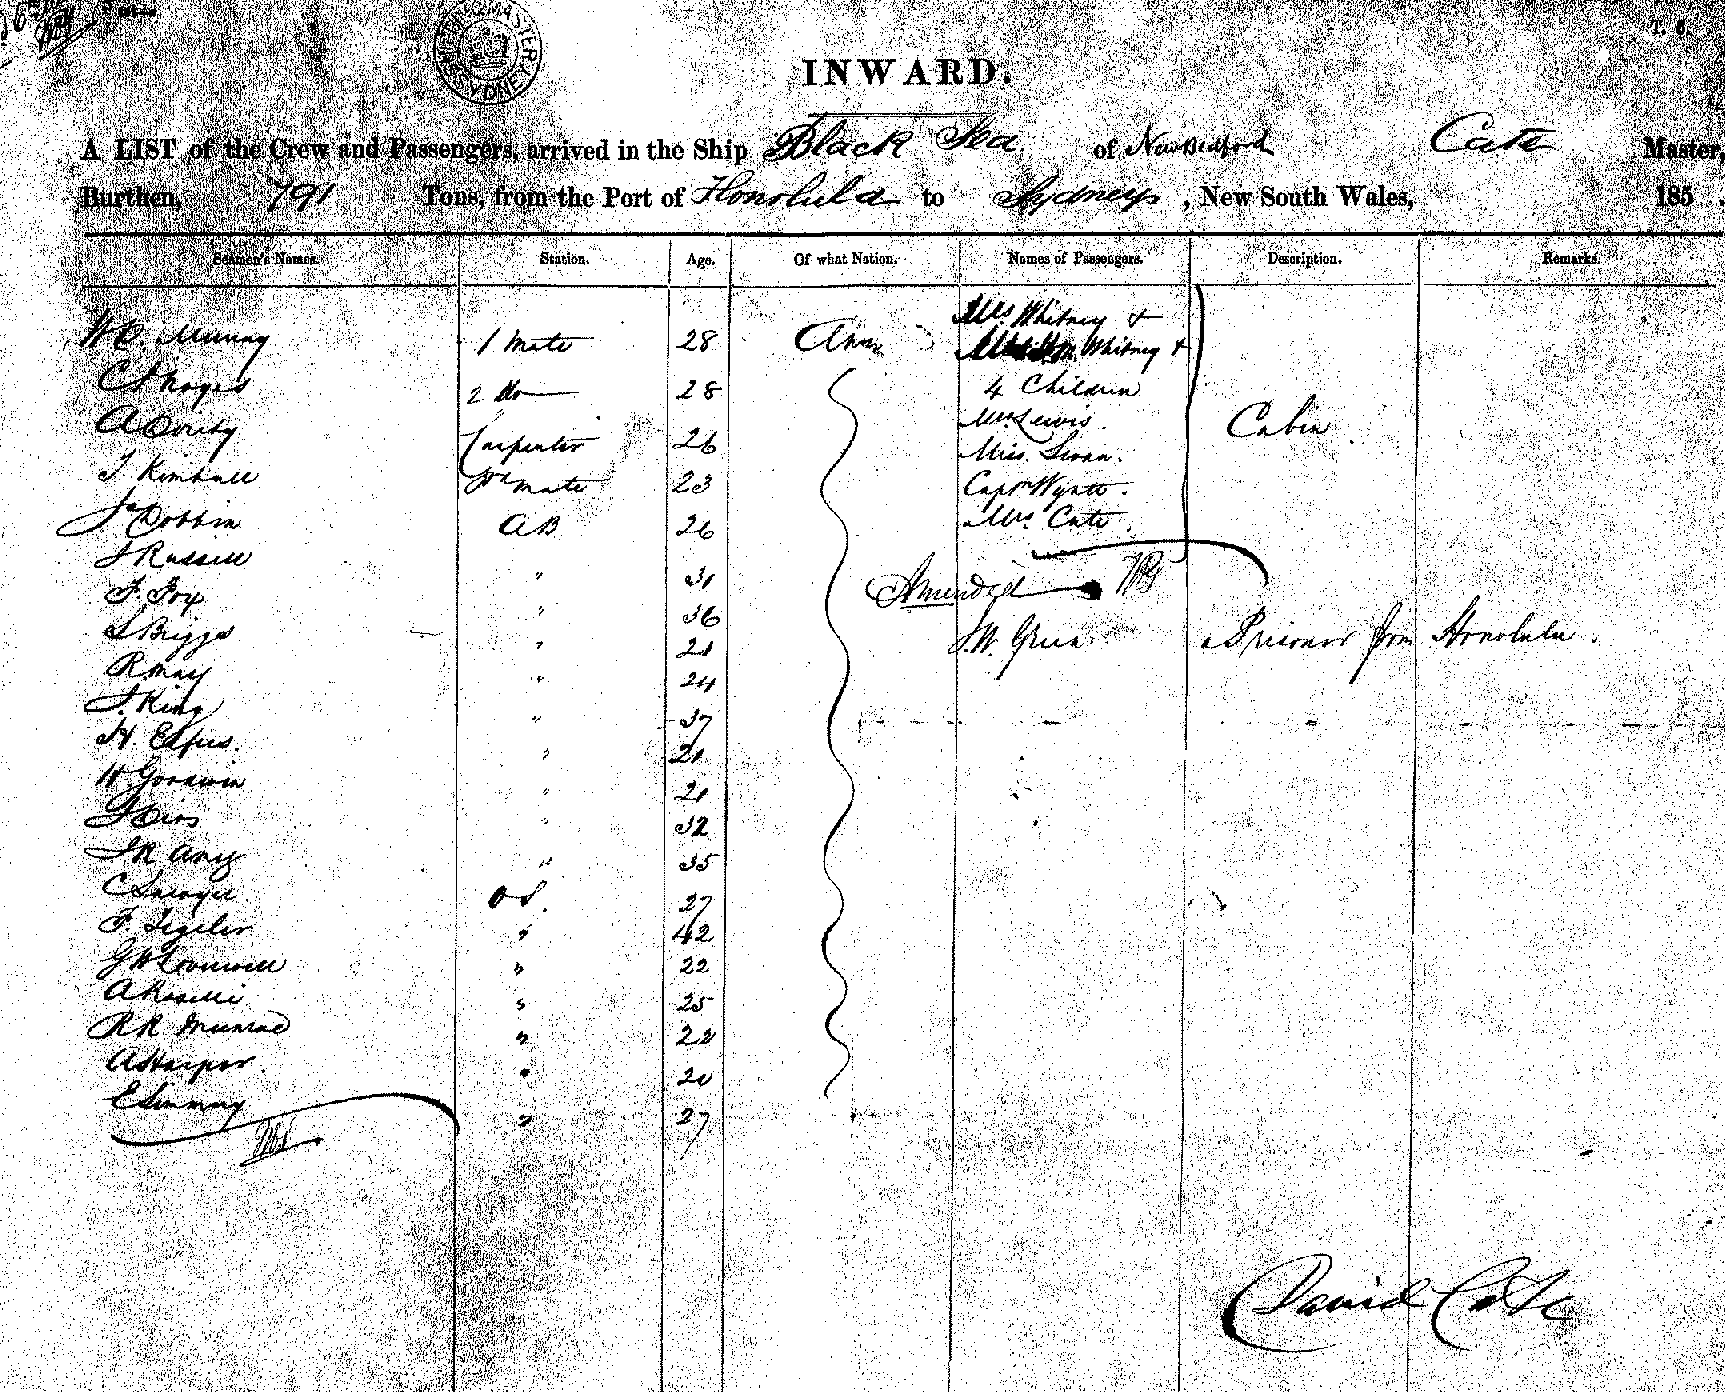 INWARD.
A LIST of the Crew and Passengers, arrived in the Ship Black Sea of New Bedford Cate Master,
Burthen, 791 Tons, from the Port of Honolulu to Sydney, New South Wales, 185 .
Seamen's Names. Station. Age. Of what Nation. Names of Passengers. Description. Remarks.
Mrs Whitney +
W C. Murray 1 Mate 28
Whitney +
C 2 do 28 4 Children
A Carpenter 26 Mrs Lewis. Cabin
Miss Swan.
T Kimball Mate 23 Captn Wyatt.
Jas Dobbin AB 26 Mrs Cate
J Russell " 31
F. Fox " 36 Amended
S Briggs " 21 J.W. Green Prisoner from Honolulu.
R. May " 24
J. King " 37
H. " 21
W Goodwin " 21
" 32
J R Avey " 35
C Sawyer OS. 27
F. " 42
G W " 22
A " 25
R R Munroe " 22
A Harper " 20
E " 27
David Cate